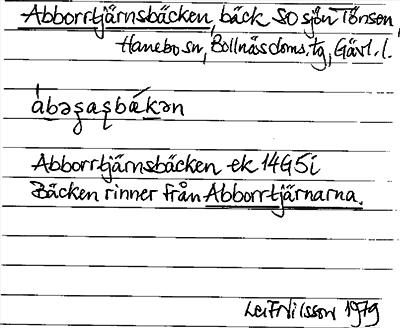 Abborrtjärnsbäcken, bäck SO sjön Tönsen,
Hanebo sn, Bollnäs doms. tg, Gävl. l.
ábəʂaʂbǽkən
Abborrtjärnsbäcken ek 14G5i
Bäcken rinner från Abborrtjärnarna.
Leif Nilsson 1979